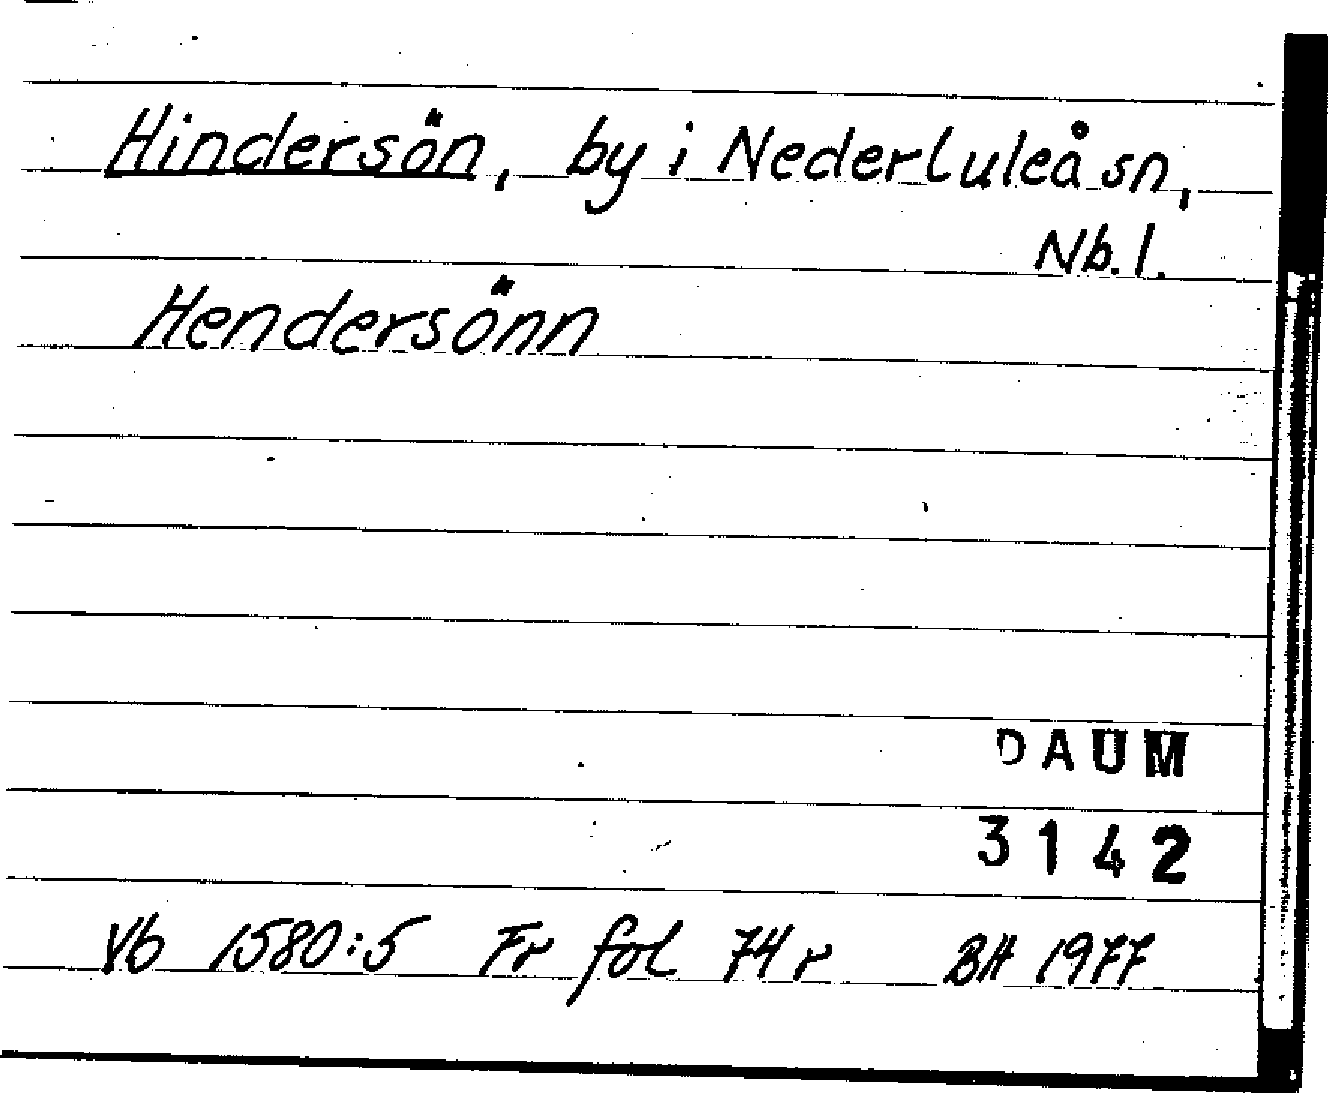 Hindersön, by i Nederluleå sn,
Nb. l.
Hendersönn
DAUM
3142
Vb 1580:5 Fr fol 74 r BH 1977